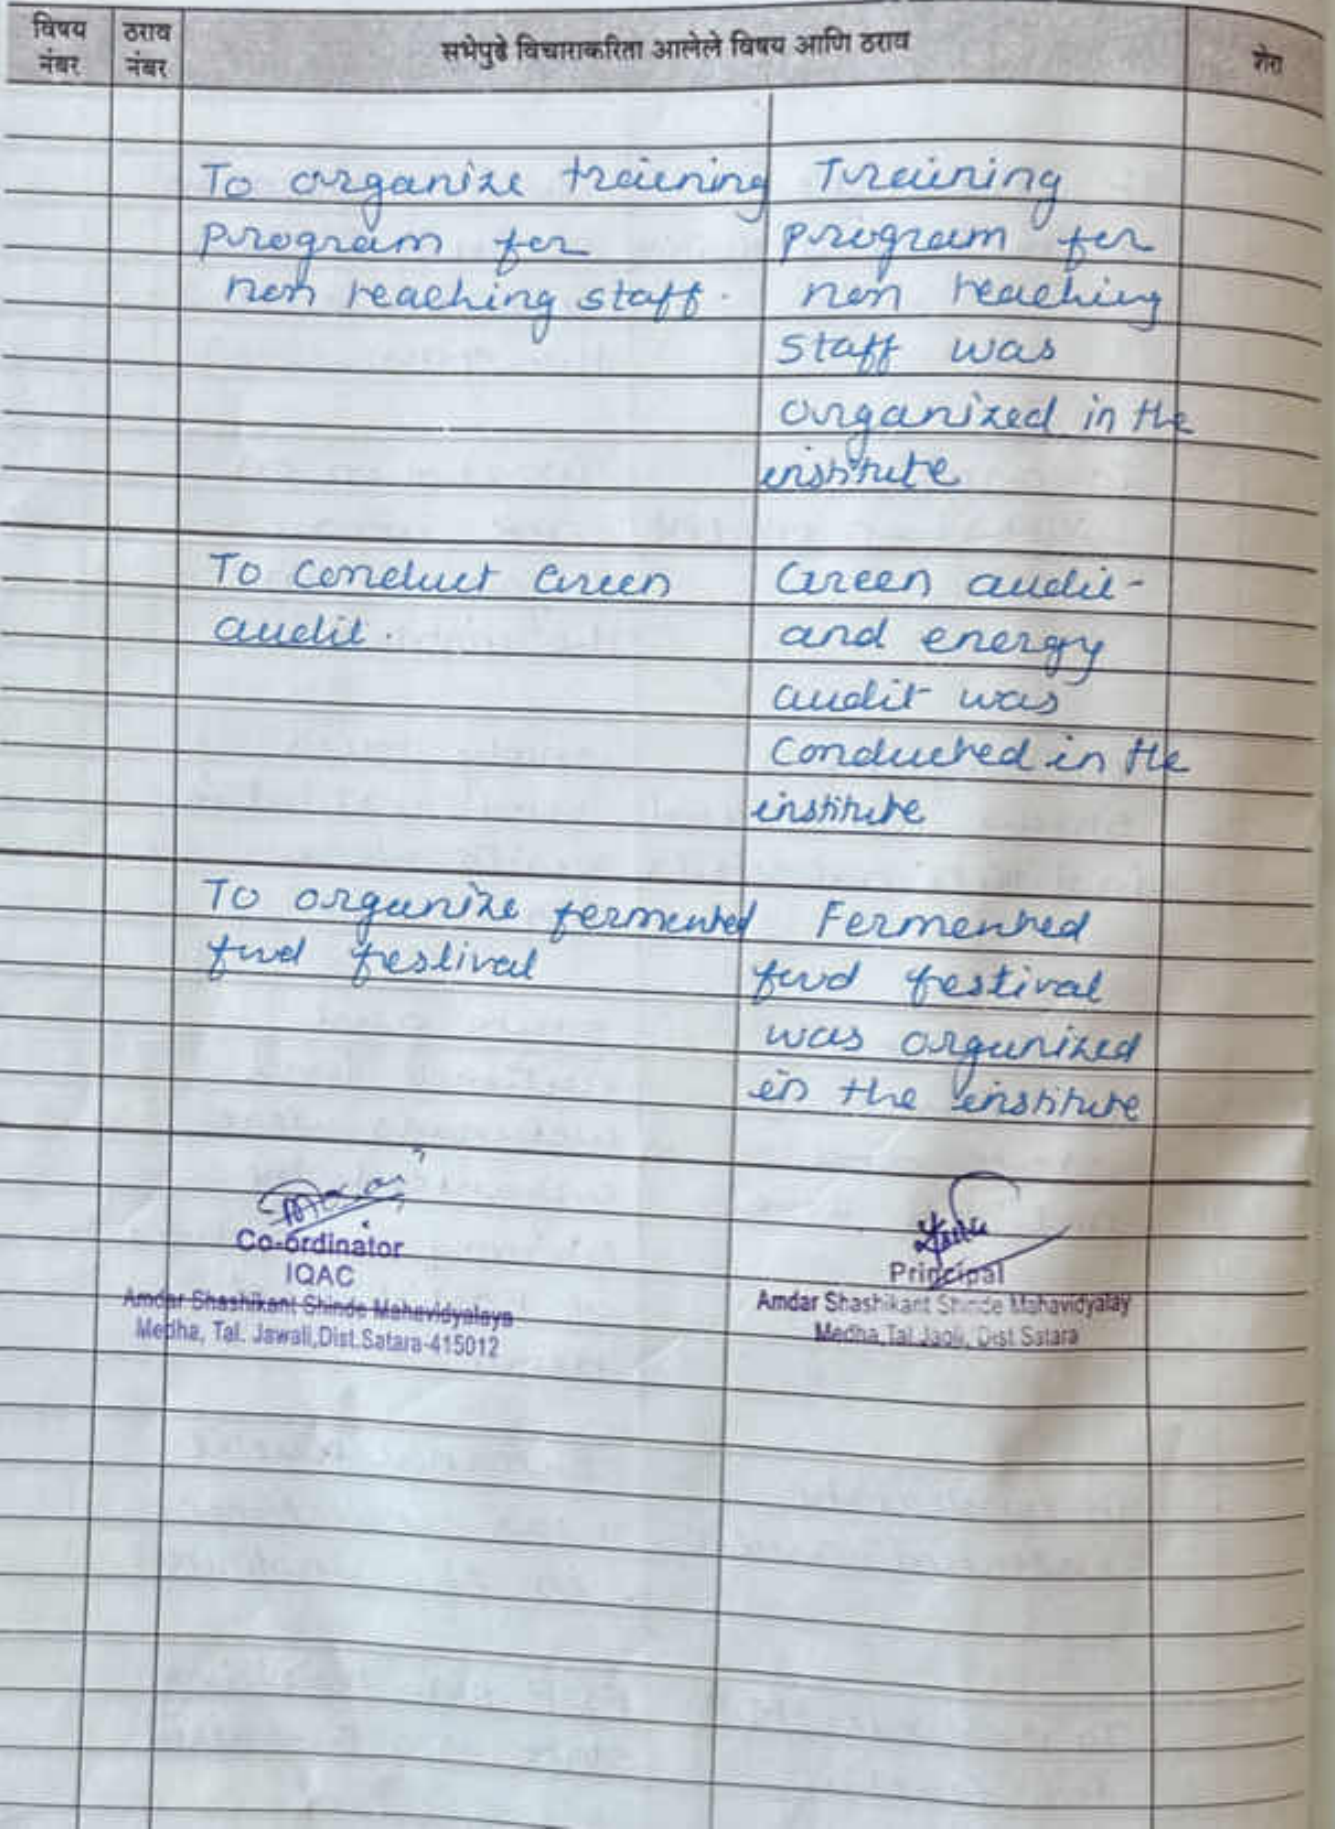 विषय नंबर
ठराव नंबर
सभेपुढे विचाराकरिता आलेले विषय आणि ठराव
शेरा
To organize training
program for
non teaching staff.
Training
program for
non teaching
staff was
organized in the
institute
To conduct Green
audit.
Green audit
and energy
audit was
conducted in the
institute
To organize fermented
food festival
Fermented
food festival
was organized
in the institute
Co-ordinator
IQAC
Amdar Shashikant Shinde Mahavidyalaya
Medha, Tal. Jawali,Dist.Satara-415012
Principal
Amdar Shashikant Shinde Mahavidyalay
Medha,Tal.Jaoli, Dist Satara